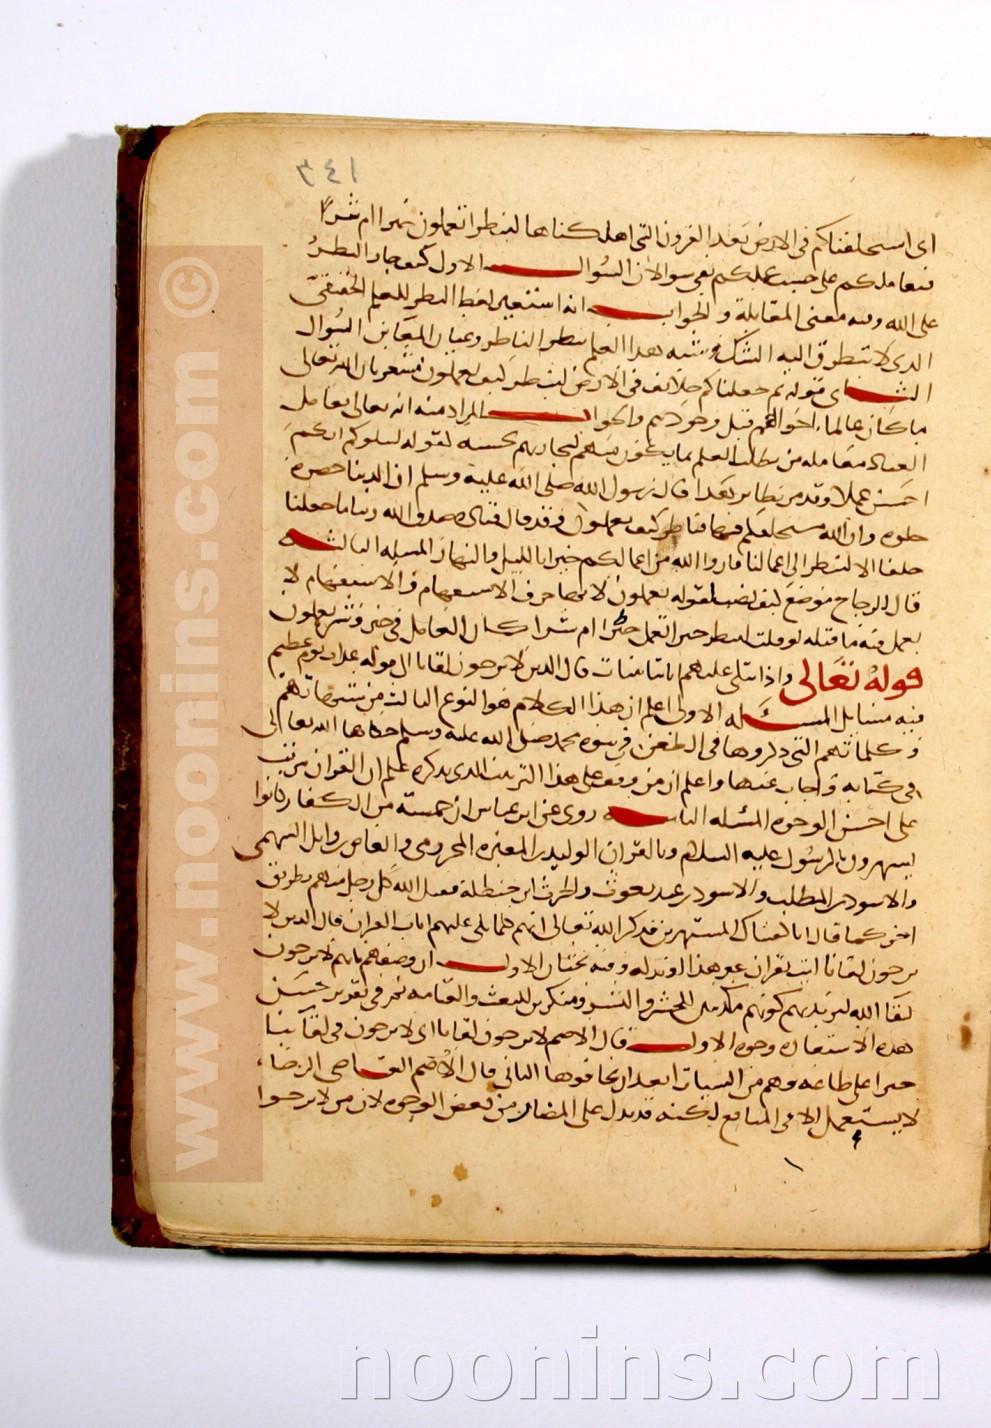 ٣٤١
اى استخلفناكم فى الارض بعد القرون التى اهلكناها لننظر اتعملون خيرا ام شرا
فنعاملكم على حسب عملكم بقى سوالان السوال الاول كيف جاز النظر
على الله وفيه معنى المقابلة والجواب انه استعير لفظ النظر للعلم الحقيقى
الذى لا يتطرق اليه الشك وشبه هذا العلم بنظر الناظر وعيان المعاين السوال
الثانى قوله ثم جعلناكم خلائف فى الارض لننظر كيف تعملون مشعر بان الله تعالى
ما كان عالما باحوالهم قبل وجودهم والجواب المراد منه انه تعالى يعامل
العباد معاملة من يطلب العلم بما يكون منهم ليجازيهم بحسبه لقوله ليبلوكم ايكم
احسن عملا وقد مر نظائر هذا قال رسول الله صلى الله عليه وسلم ان الدنيا خضرة
حلوة وان الله مستخلفكم فيها فناظر كيف تعملون وقال قتادة صدق الله ربنا ما جعلنا
خلفا الا لينظر الى اعمالنا فاروا الله من اعمالكم خيرا بالليل والنهار المسله الثالثه
قال الزجاج موضع كيف نصب لقوله تعملون لانها حرف الاستفهام والاستفهام لا
يعمل فيه ما قبله لو قلت لننظر خيرا تعمل ام شرا كان العامل فى خير وشر تعملون
قوله تعالى واذا تتلى عليهم اياتنا بينات قال الذين لا يرجون لقانا الى قوله عذاب يوم عظيم
فيه مسايل المسئله الاولى اعلم ان هذا الكلام هو النوع الثالث من شبهاتهم
وكلماتهم التى ذكروها فى الطعن فى نبوة محمد صلى الله عليه وسلم حكاها الله تعالى
فى كتابه واجاب عنها واعلم ان من وقف على هذا الترتيب الذى نذكره علم ان القران مرتب
على احسن الوجوه المسئله الثانيه روى عن ابن عباس ان خمسة من الكفار كانوا
يستهزون بالرسول عليه السلام وبالقران الوليد بن المغيره المخزومى والعاص بن وايل السهمى
والاسود بن المطلب والاسود بن عبد يغوث والحرث ابن حنظلة فقتل الله كل رجل منهم بطريق
اخر كما قال انا كفيناك المستهزين فذكر الله تعالى انهم كلما تلى عليهم ايات القران قال الذين لا
يرجون لقانا ايت بقران غير هذا او بدله وفيه بحثان الاول ان وصفهم بانهم لا يرجون
لقا الله اريد به كونهم مكذبين بالحشر والنشر ومنكرين للبعث والقيامه ثم فى تقرير حسن
هذه الاستعاره وجوه الاول قال الاصم لا يرجون لقانا اى لا يرجون فى لقائنا
خيرا على طاعه فهم من السيات ابعد ان يخافوها الثانى قال القاضى الرجا
لا يستعمل الا فى المنافع لكنه قد يدل على المضار من بعض الوجوه لان من لا يرجوا
www.noonins.com ©
noonins.com